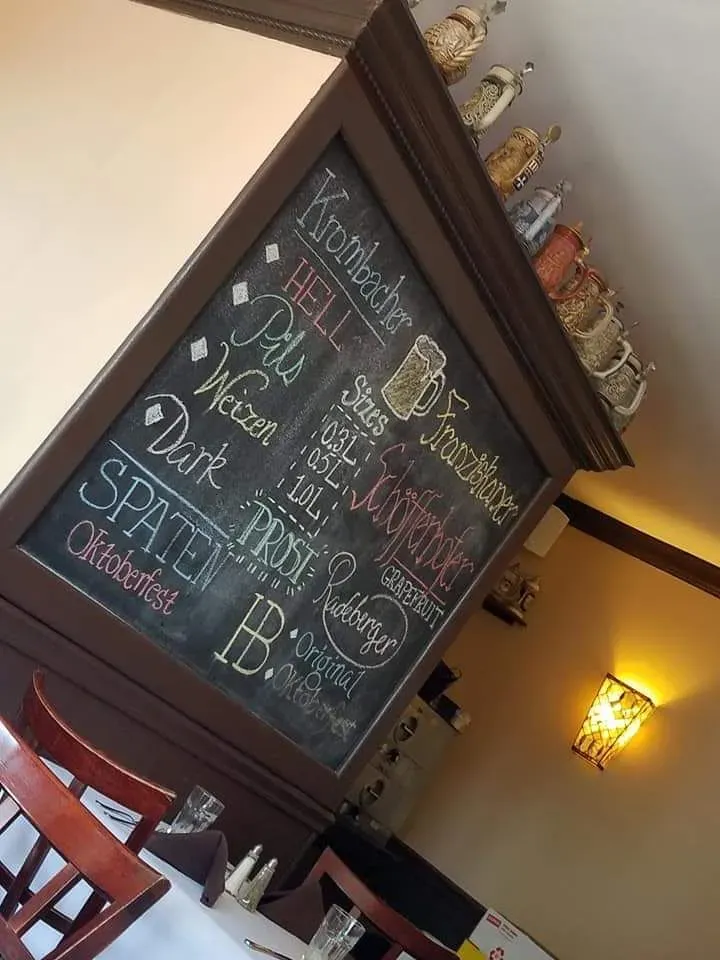 Krombacher
HELL
Pils
Weizen
Dark
SPATEN
Oktoberfest
Sizes
0.3L
0.5L
1.0L
PROST
HB
Original
Oktoberfest
Franziskaner
Schöfferhofer
GRAPEFRUIT
Radeberger